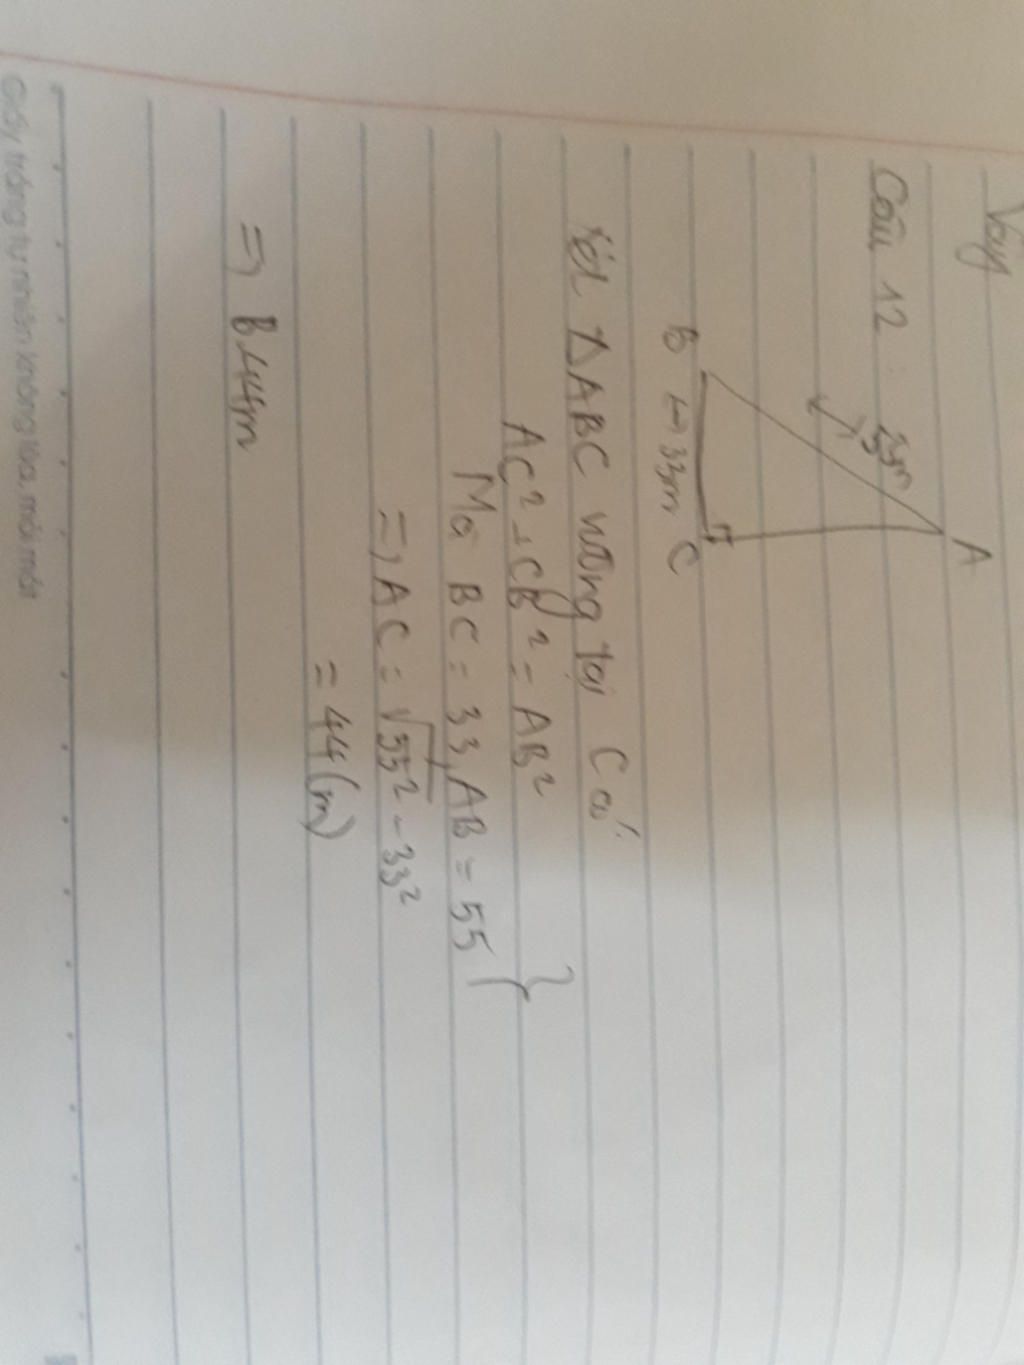 Vậy
Câu 12:
A
55m
B ↔ 33m C
Xét ΔABC vuông tại C có:
AC² + CB² = AB²
Mà BC = 33, AB = 55 }
=> AC = √55² - 33²
= 44 (m)
=> B.44m
Giấy trắng tự nhiên không lóa, mỏi mắt